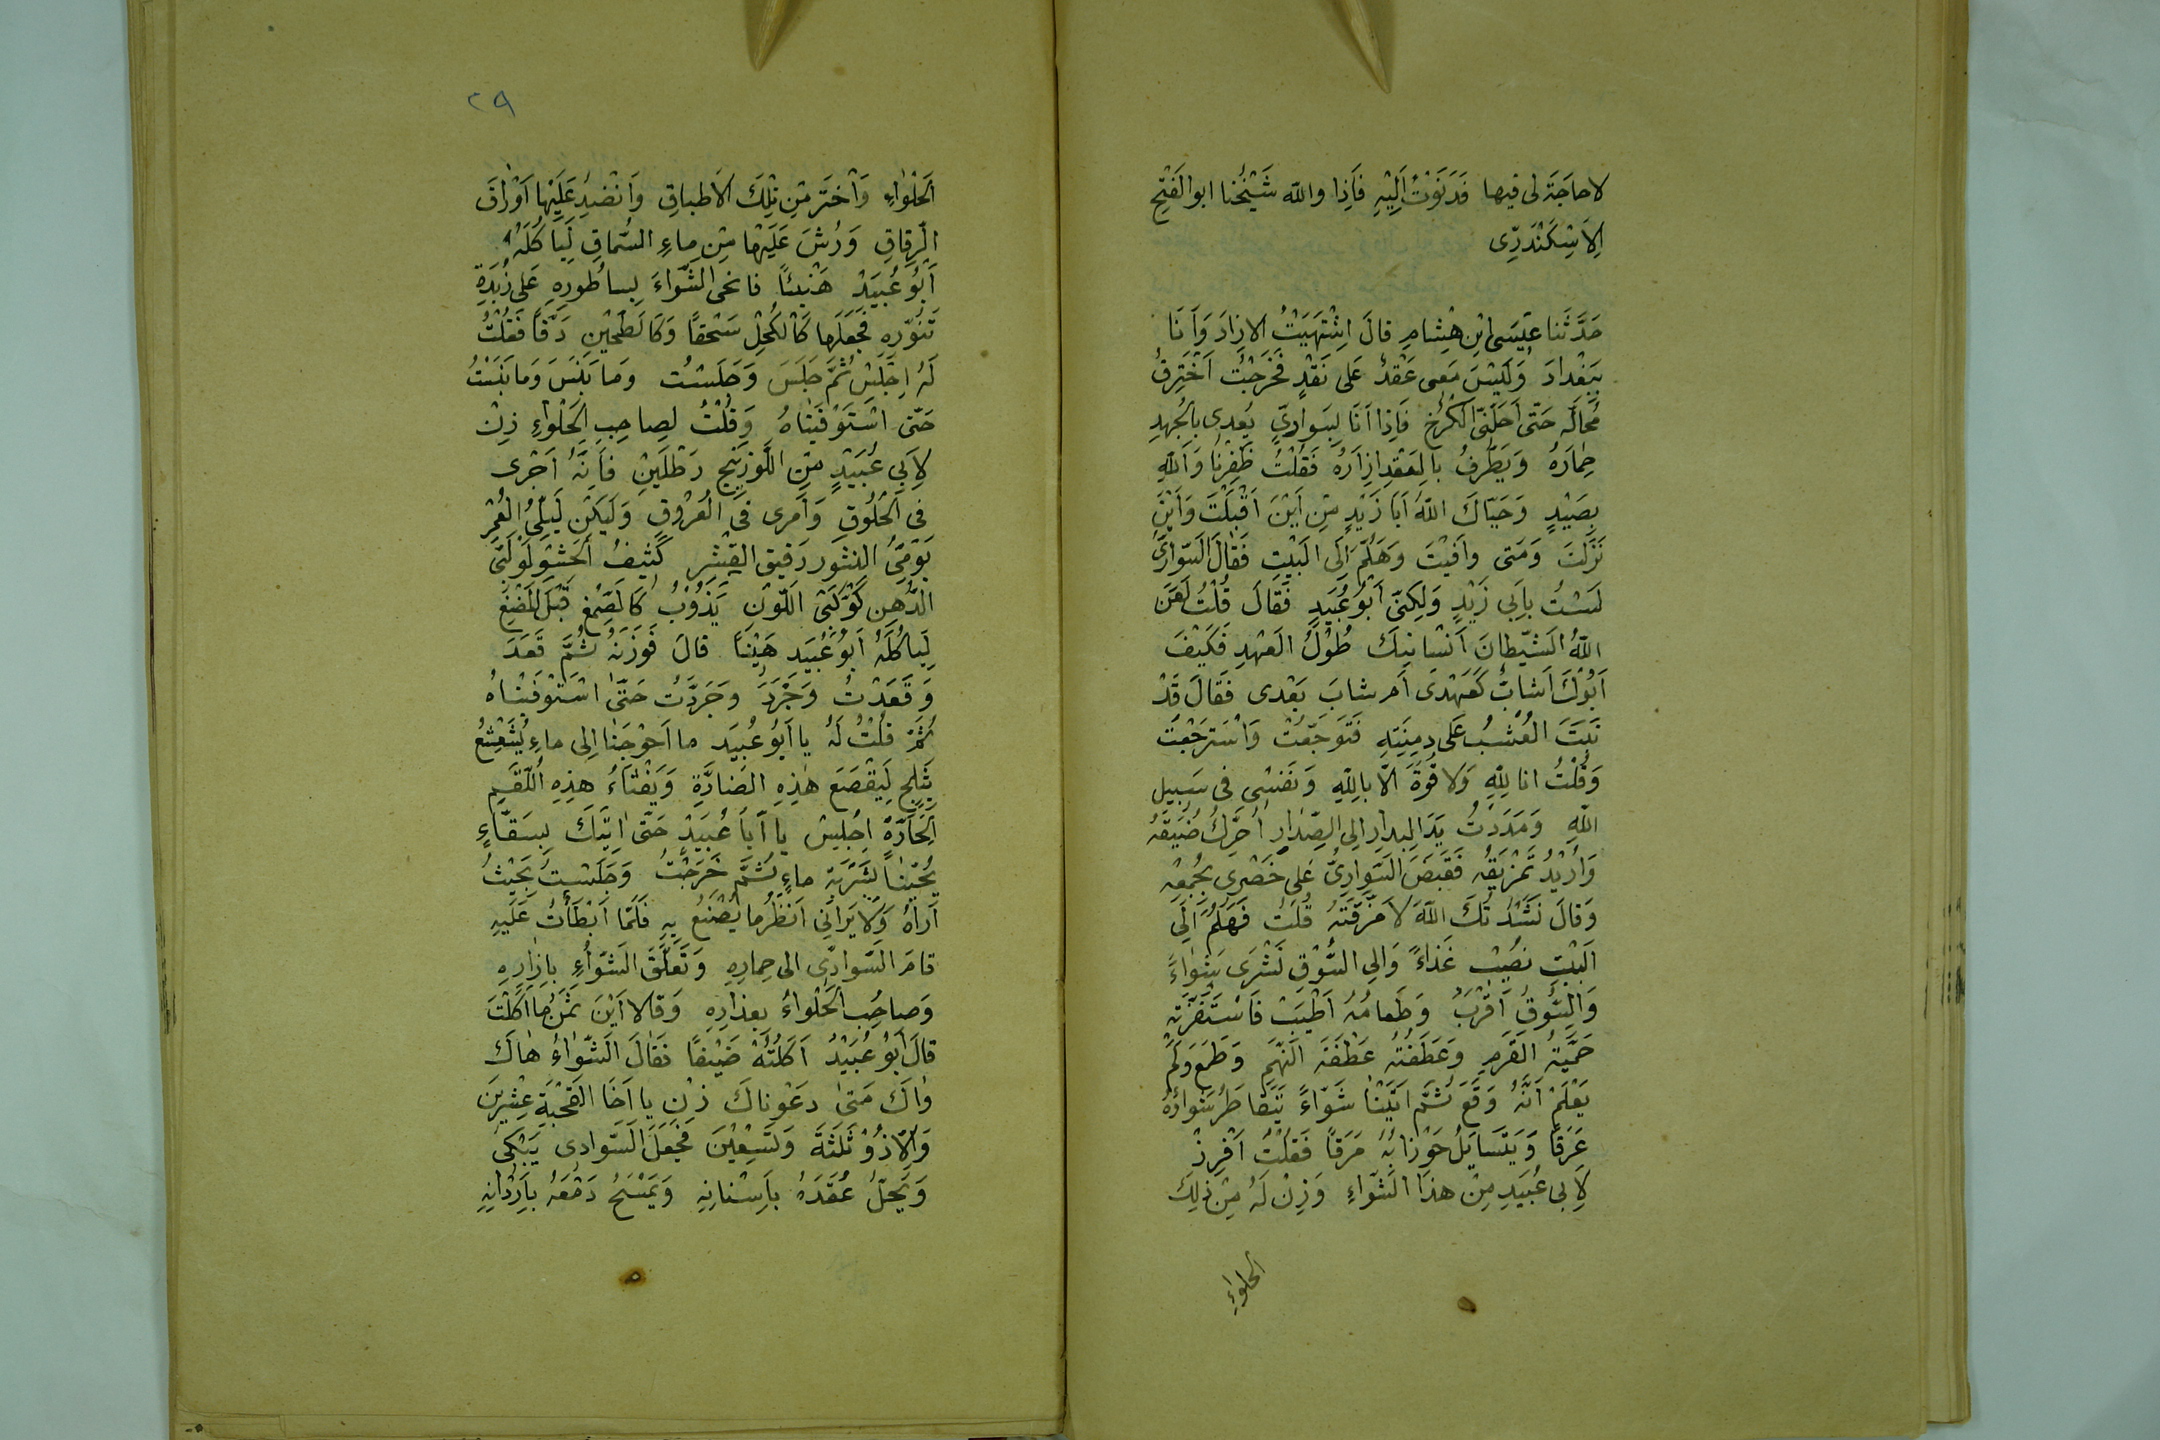 لاحاجَةَ لى فيها فَدَنَوْتُ اَلِيْهِ فَاِذا والله شَيْخُنا ابوالفَتْحِ
الاَسْكَنْدَرِّى
حَدَّثَنا عِيْسَى اِبْنِ هِشامٍ قالَ اِشْتَهَيْتُ الازادَ وَاَنَا
بِبَغْدادَ وَلَيْسَ مَعى عَقْدٌ عَلى نَقْدٍ فَخَرَجْتُ اَخْتَرِقُ
مُحالَّه حَتّى اَحَلَنّى الكَرْخ فَاِذا اَنَا بِسَوارِيٍّ يُعدى بالجُهدِ
حِمارَهُ وَيَطْرِفُ بالعَقْدِ اِزارَهُ فَقُلْتُ ظَفِرْنا وَاللهِ
بِصَيْدٍ وَحَيّاكَ اللهُ اَبَا زَيْدٍ مِنْ اَيْنَ اَقْبَلْتَ وَاَيْنَ
نَزَلْتَ وَمَتى وافَيْتَ وَهَلُمَّ اِلَى البَيْتِ فَقالَ السَّوارىُّ
لَسْتُ بِاَبى زَيْدٍ وَلكِنّى اَبُو عُبَيْدٍ فَقَالَ قُلْتُ لَعَنَ
اللهُ الشَّيْطانَ اَنْسانيكَ طُوْلُ العَهْدِ فَكَيْفَ
اَبُوْكَ اَشابٌّ كَعَهْدى اَم شابَ بَعْدى فَقالَ قَدْ
نَبَتَ العُشْبُ عَلى دِمِنَتِهِ فَتَوَجَّعْتُ وَاسْتَرجَعْتُ
وَقُلْتُ انا للهِ وَلا قُوةَ الّا باللهِ وَنَفْسى فى سَبيلِ
اللهِ وَمَدَدْتُ يَدَ البِدارِ اِلى الصِّدارِ اُحَرِّكُ ضَيْقَهُ
وَاُرِيْدُ تَمْزِيْقَهُ فَقَبَضَ السَّوارِىُّ عَلى خَصْرى بِجُمْعِهِ
وَقالَ نَشَدْتُكَ اللهَ لاَمَزَّقْتَهُ قُلْتُ فَهَلُمَّ اِلَى
البَيْتِ نُصِيْبُ غَذاءً وَالِى السُّوْقِ نَشْرَى شِواءً
وَالسُّوقُ اَقْرَبُ وَطَعامُهُ اَطْيَبُ فَاسْتَفَزَّتْهِ
حَمَّيةُ القَرَمِ وَعَطَفْتُهُ عَطْفَةَ النَّهَمِ وَطَمَعَ وَلَمْ
يَعْلَمْ اَنَّهُ وَقَعَ ثُمَّ اَتَيْنا شَوّاءً يَتَقاطَرُ شِواؤُهُ
عَرَقًا وَيَتَسايَلُ جَوْزابُهُ مَرَقًا فَقُلْتُ اَفْرِزْ
لاَبى عُبَيدٍ مِنْ هذا الشَّواءِ وَزِنْ لَهُ مِنْ ذلِكَ
الحلواءِ
٢٩
الحَلْواءِ وَاْخْتَرْ مِنْ تِلْكَ الاَطباقِ وَانْضِدْ عَلَيْها اَوْراقَ
الرِّقاقِ وَرُشَّ عَلَيْها مِنْ ماءِ السُّماقِ لِيَاكُلَهُ
اَبُو عُبَيْدٍ هَنيئًا فانحى الشّواءَ بِساطُورِهِ عَلى زُبْدَةِ
تَنُّوْرِهِ فَجَعَلَها كَالكُحْلِ سَحْقًا وَكَالطِّحْنِ دَقًّا فَقُلْتُ
لَهُ اِجْلِسْ ثُمَّ جَلَسَ وَجَلَسْتُ وَمَا يَئِسَ وَمَا يَئِسْتُ
حَتّى اسْتَوْفَيْناهُ وَقُلْتُ لِصاحِبِ الحَلْواءِ زِنْ
لاَبى عُبَيْدٍ مِنَ اللَّوْزِيْنِجِ رَطْلَيْنِ فَاِنَّهُ اَجْرى
فى الحُلُوقِ وَاَمرى فى العُرُوْقِ وَلْيَكُنْ لَيْلِىُّ العُمْرِ
يَوْمِىُّ النشور رَقيقَ القِشْرِ كَثيفُ الحَشْوِ لُؤْلُئِىُّ
الدُّهْنِ كَوْكَبىُّ اللَّوْنِ يَذُوْبُ كَالصَّمْغِ قَبْلَ المَضْغِ
لِيَاكُلَهُ اَبُو عُبَيدٍ هَنِيًّا قالَ فَوَزَنَهُ ثُمَّ قَعَدَ
وَقَعَدْتُ وَجَرَدَ وَجَرَدْتُ حَتّى اسْتَوْفَيْناهُ
ثُمَّ قُلْتُ لَهُ يا اَبُو عُبَيَد ما اَحْوَجَنا اِلى ماءٍ يُشَعْشَعُ
بِثَلْجٍ لِيَقْصَعَ هذِهِ الصّارَّةَ وَيَفْثَاءُ هذِهِ اللُّقَمِ
الحَارَّةَ اِجْلِيس يا اَبا عُبَيْدٍ حَتّى اتِيَكَ بِسَقّاءٍ
يُحيّنا بِشَرْبَةِ ماءٍ ثُمَّ خَرَجْتُ وَجَلَسْتُ بِحَيْثُ
اَراهُ وَلا يَرانى اَنظُرُ ما يَصْنَعُ بِهِ فَلَمّا اَبْطَأْتُ عَلَيهِ
قامَ السَّوادِّى الى حِمارِهِ وَتَعَلَّقَ الشّواءُ بِازارِهِ
وَصاحِبُ الحَلْواءُ بِعِذارِهِ وَقالا اَيْنَ ثَمَنُ ما اَكَلْتَ
قالَ اَبُو عُبَيْدٍ اَكَلْتُهُ ضَيْفًا فَقَالَ الشَّوّاءُ هاكَ
واٰكَ مَتى دَعَوْناكَ زِنْ يا اَخَا القَحْبَةِ عِشْرِيْنَ
وَالّا ذُوْ ثَلثَةَ وَتِسْعِيْنَ فَجَعَلَ السَّوادى يَبْكى
وَيَحلُّ عُقَدَهُ بِاَسْنانِهِ وَيَمْسَحُ دَمْعَهُ بِاَرْدانِهِ